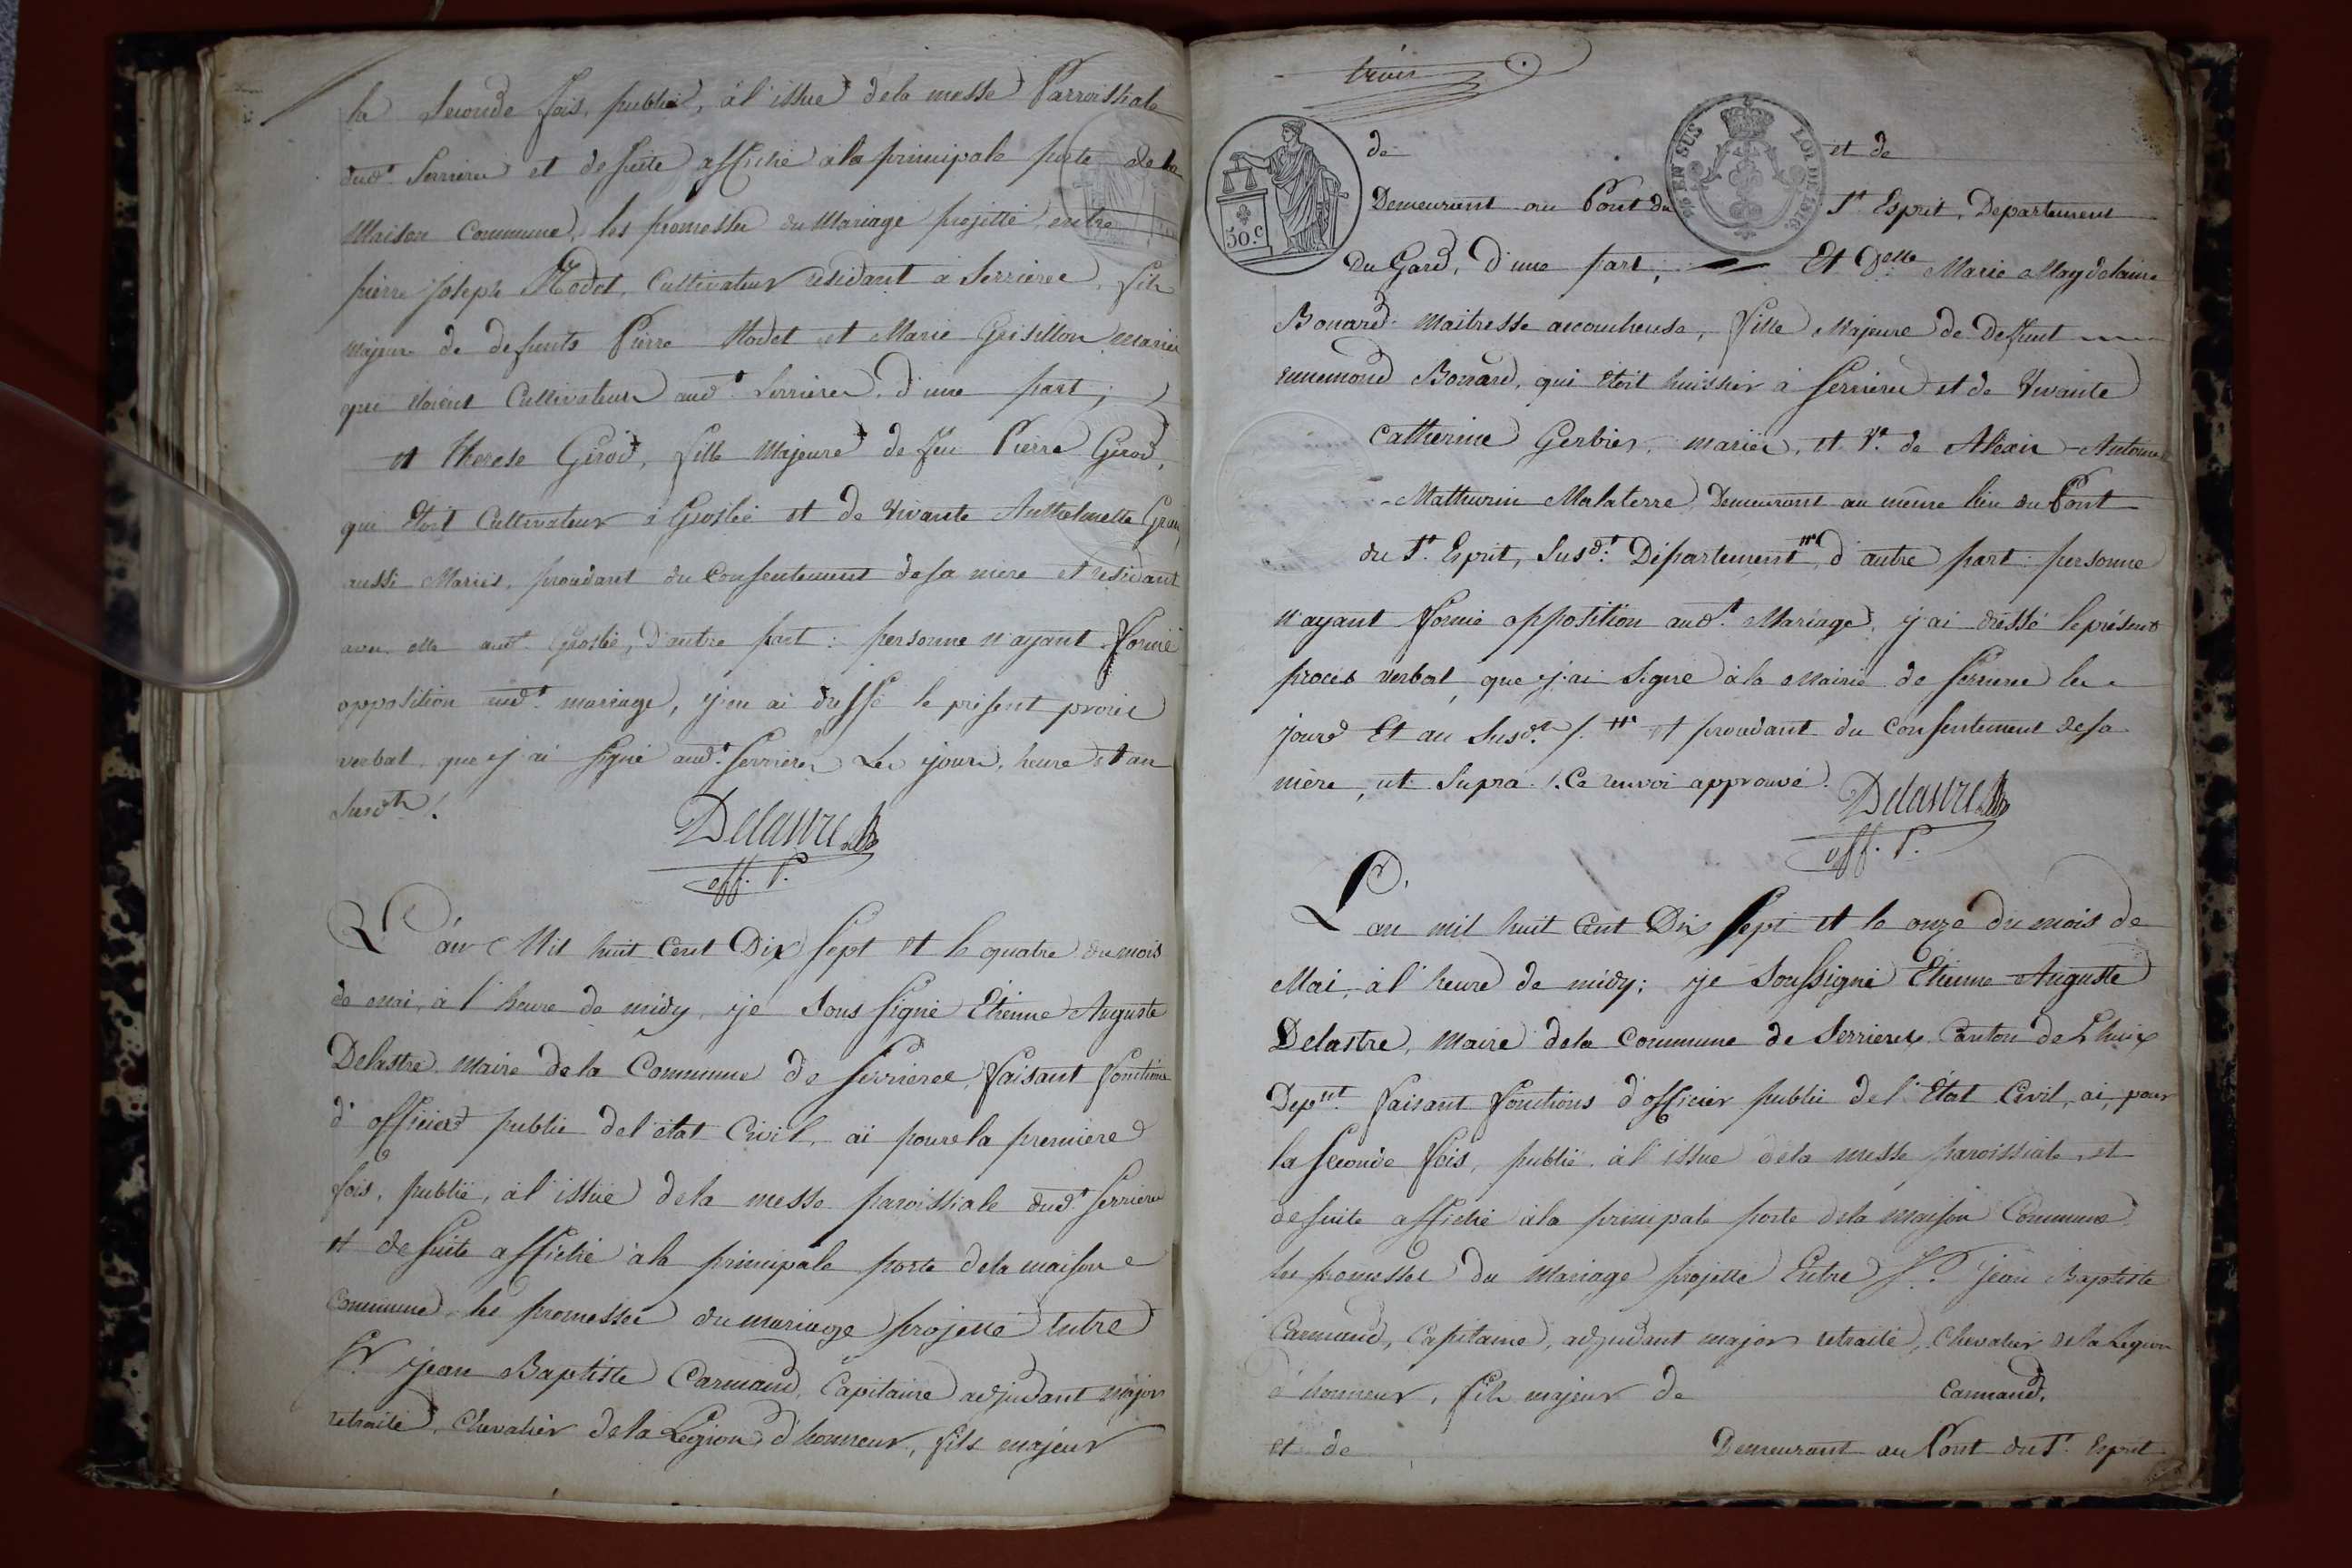 la seconde fois, publié, à l'issue de la messe Parroissiale
dud.t Serrieres et de suite affiché à la principale porte de la
Maison Commune, les promesses du Mariage projetté entre
pierre joseph Modet, Cultivateur residant à Serrieres, fils
majeur de defunts Pierre Modet et Marie Grisillon mariés
qui étoient Cultivateurs aud.t Serrieres, d'une part;
et Therese Girod, fille Majeure de feu Pierre Girod,
qui étoit Cultivateur à Groslée et de vivante Anthelmette
aussi Mariés, procedant du Consentement de sa mere et residant
avec elle aud.t Groslée, d'autre part: personne n'ayant formé
opposition aud.t mariage, j'en ai dressé le présent procès
verbal que j'ai signé aud.t Serrieres Les jour, heure et an
susd.ts /.
Delastre
off. P.
L'an Mil huit Cent Dix sept et le quatre du mois
de mai, à l'heure de midy, je Sous signé Etienne Auguste
Delastre Maire de la Commune de Serrieres, faisant fonctions
d'officier public de l'état Civil, ai pour la premiere
fois, publié, à l'issue de la messe paroissiale dud.t Serrieres
et de suite affiché à la principale porte de la maison
Commune les promesses du mariage projetté Entre
S.r jean Baptiste Carmand, Capitaine adjudant major
retraité, Chevalier de la Legion d'honneur, fils majeur
trois
50.c
EN SUS
LOI DE
de et de
Demeurant au Pont du S.t Esprit, Departement
du Gard, d'une part; Et D.elle Marie Magdelaine
Bonard maitresse accoucheuse, fille Majeure de Deffunt
ennemond Bonard, qui étoit huissier à Serrieres et de Vivante
Catherine Gerbier, mariés, et V.e de Alexis Antoine
Mathurin Malaterre Demeurant au même lieu du Pont
du S.t Esprit, Susd.t Département, d'autre part: personne
n'ayant formé opposition aud.t Mariage, j'ai dressé le présent
procès verbal que j'ai signé à la Mairie de Serrieres les
jour Et an Susd.ts /. et procedant du Consentement de sa
mère, ut Supra /. Ce renvoi approuvé.
Delastre
off. P.
L'an mil huit Cent Dix Sept et le onze du mois de
Mai, à l'heure de midy; je Soussigné Etienne Auguste
Delastre, Maire de la Commune de Serrieres Canton de Lhuix
Dep.nt faisant fonctions d'officier public de l'État Civil, ai, pour
la seconde fois, publié à l'issue de la messe paroissiale, et
de suite affiché à la principale porte de la maison Commune
les promesses du Mariage projetté Entre S.r jean Baptiste
Carmand, Capitaine, adjudant major retraité, Chevalier de la Legion
d'honneur, fils majeur de Carmand,
et de Demeurant au Pont du S.t Esprit